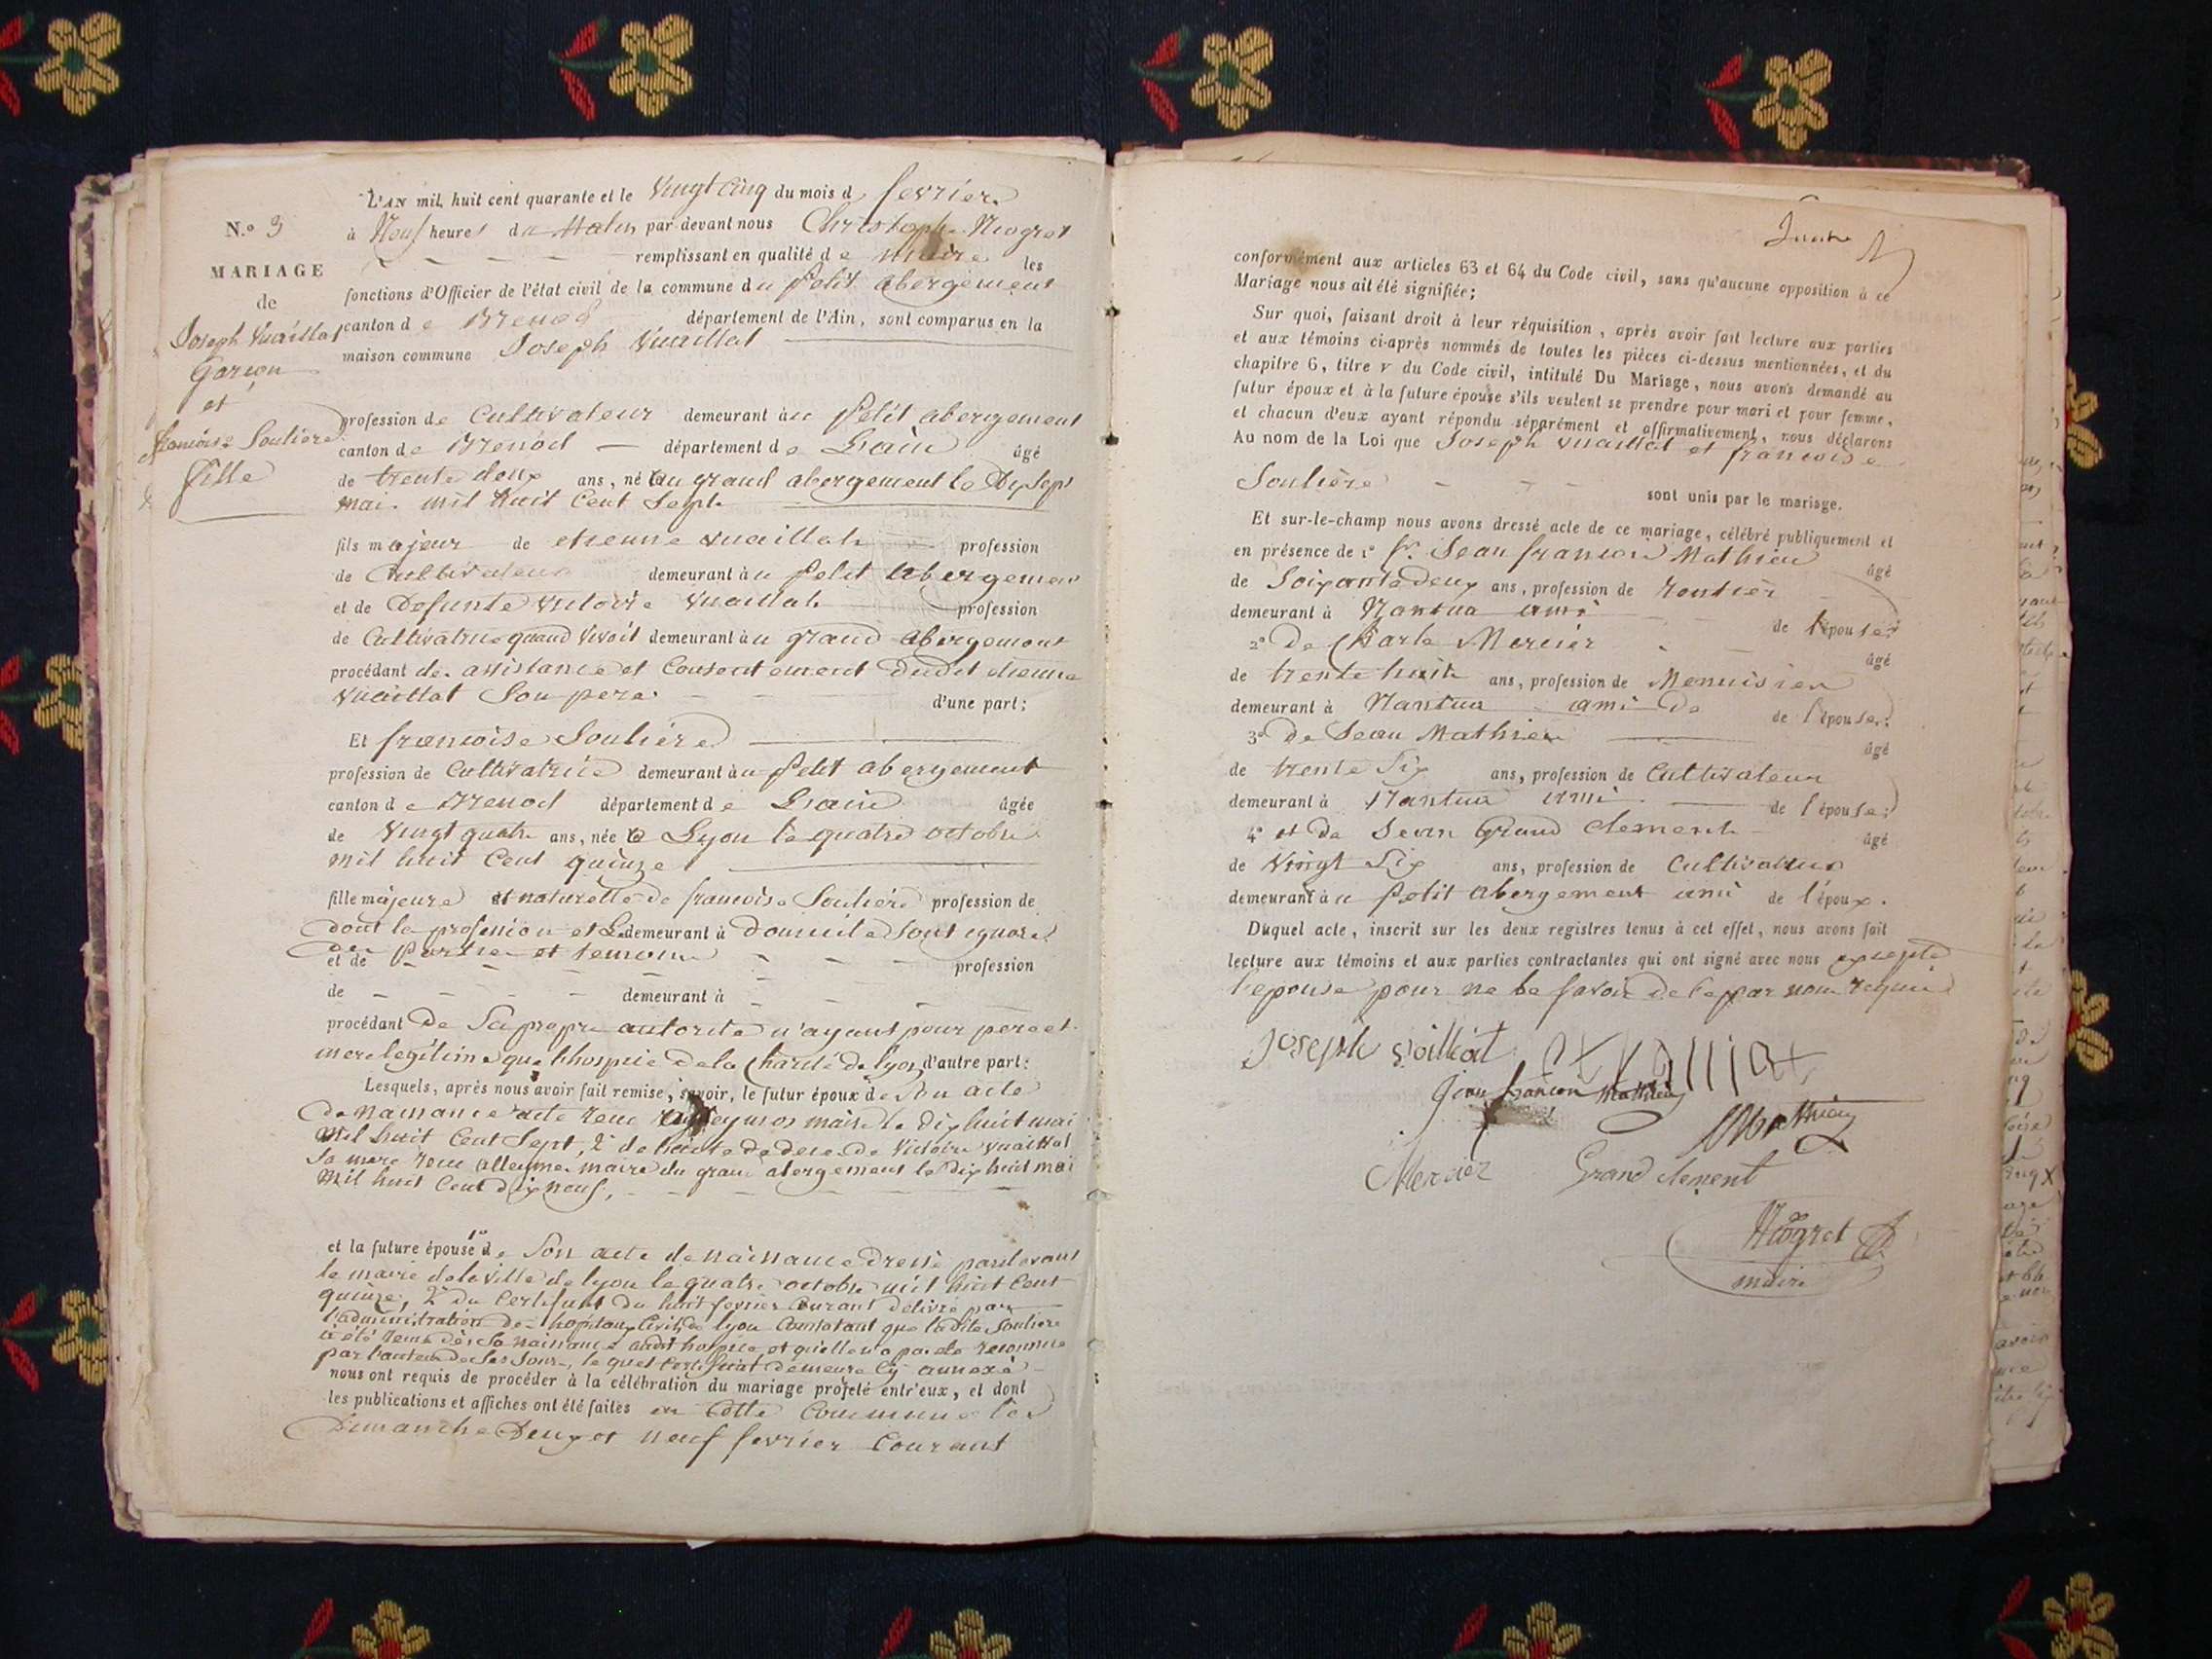 L'AN mil huit cent quarante et le vingt cinq du mois d fevrier
N.º 3
à Neuf heures du Matin par-devant nous Christophe Niogret
remplissant en qualité de maire les
MARIAGE
fonctions d'Officier de l'état civil de la commune du petit abergement
de
canton de Brenod département de l'Ain, sont comparus en la
Joseph Vuaillat
maison commune Joseph Vuaillat
Garçon
et
profession de Cultivateur demeurant au petit abergement
francoise Souliere
canton de Brenod département de Lain âgé
fille
de trente deux ans, né au grand abergement le dix sept
mai mil huit Cent Sept
fils majeur de etienne vuaillat profession
de Cultivateur demeurant au petit abergement
et de Defunte Victoire Vuaillat profession
de Cultivatrice quand vivoit demeurant au grand abergement
procédant de assistance et Consentement dudit etienne
vuaillat Son pere d'une part;
Et francoise Souliere
profession de Cultivatrice demeurant au petit abergement
canton de Brenod département de Lain âgée
de Vingt quatre ans, née a Lyon le quatre octobre
mil huit Cent quinze
fille majeure et naturelle de francoise Souliere profession de
dont la profession et Le demeurant à domicile Sont ignorés
des parties et temoins
et de profession
de demeurant à
procédant De Sa propre autorité n'ayant pour pere et
mere legitime que l'hospice de la Charité de lyon d'autre part:
Lesquels, après nous avoir fait remise, savoir, le futur époux de Son acte
De naissance acte recu maire le dix huit mai
Mil huit Cent Sept, 2º de l'acte de deces de Victoire vuaillat
Sa mere recu maire du grand abergement le dix huit mai
Mil huit Cent dix neuf,
et la future épouse 1º de Son acte de naissance Dressé pardevant
le maire de la ville de lyon le quatre octobre mil huit Cent
quinze, 2º du Certificat du huit fevrier Courant délivré par
l'administration des hopitaux Civils de lyon Constatant que ladite Souliere
a été remise dès Sa naissance audit hospice et qu'elle n'a pas été reconnue
par l'auteur de Ses Jours, lequel Certificat demeure Cy annexé
nous ont requis de procéder à la célébration du mariage projeté entr'eux, et dont
les publications et affiches ont été faites en Cette Commune les
Dimanche Deux et neuf fevrier Courant
conformément aux articles 63 et 64 du Code civil, sans qu'aucune opposition à ce
Mariage nous ait été signifiée;
Sur quoi, faisant droit à leur réquisition, après avoir fait lecture aux parties
et aux témoins ci-après nommés de toutes les pièces ci-dessus mentionnées, et du
chapitre 6, titre v du Code civil, intitulé Du Mariage, nous avons demandé au
futur époux et à la future épouse s'ils veulent se prendre pour mari et pour femme,
et chacun d'eux ayant répondu séparément et affirmativement, nous déclarons
Au nom de la Loi que Joseph vuaillat et francoise
Souliere sont unis par le mariage.
Et sur-le-champ nous avons dressé acte de ce mariage, célébré publiquement et
en présence de 1º Sr. Jean francois Mathieu âgé
de Soixante deux ans, profession de rentier
demeurant à Nantua ami de l'épouse;
2º De Charle Mercier âgé
de trente huit ans, profession de Menuisier
demeurant à Nantua ami de de l'épouse;
3º de Jean Mathieu âgé
de trente Six ans, profession de Cultivateur
demeurant à Nantua ami de l'épouse;
4º et De Jean Grand Clement âgé
de Vingt Six ans, profession de Cultivateur
demeurant au petit abergement ami de l'époux.
Duquel acte, inscrit sur les deux registres tenus à cet effet, nous avons fait
lecture aux témoins et aux parties contractantes qui ont signé avec nous excepté
l'epouse pour ne le Savoir de Ce par nous requise
Joseph
Jean francois Mathieu
Mathieu
Mercier Grand clement
Niogret
maire